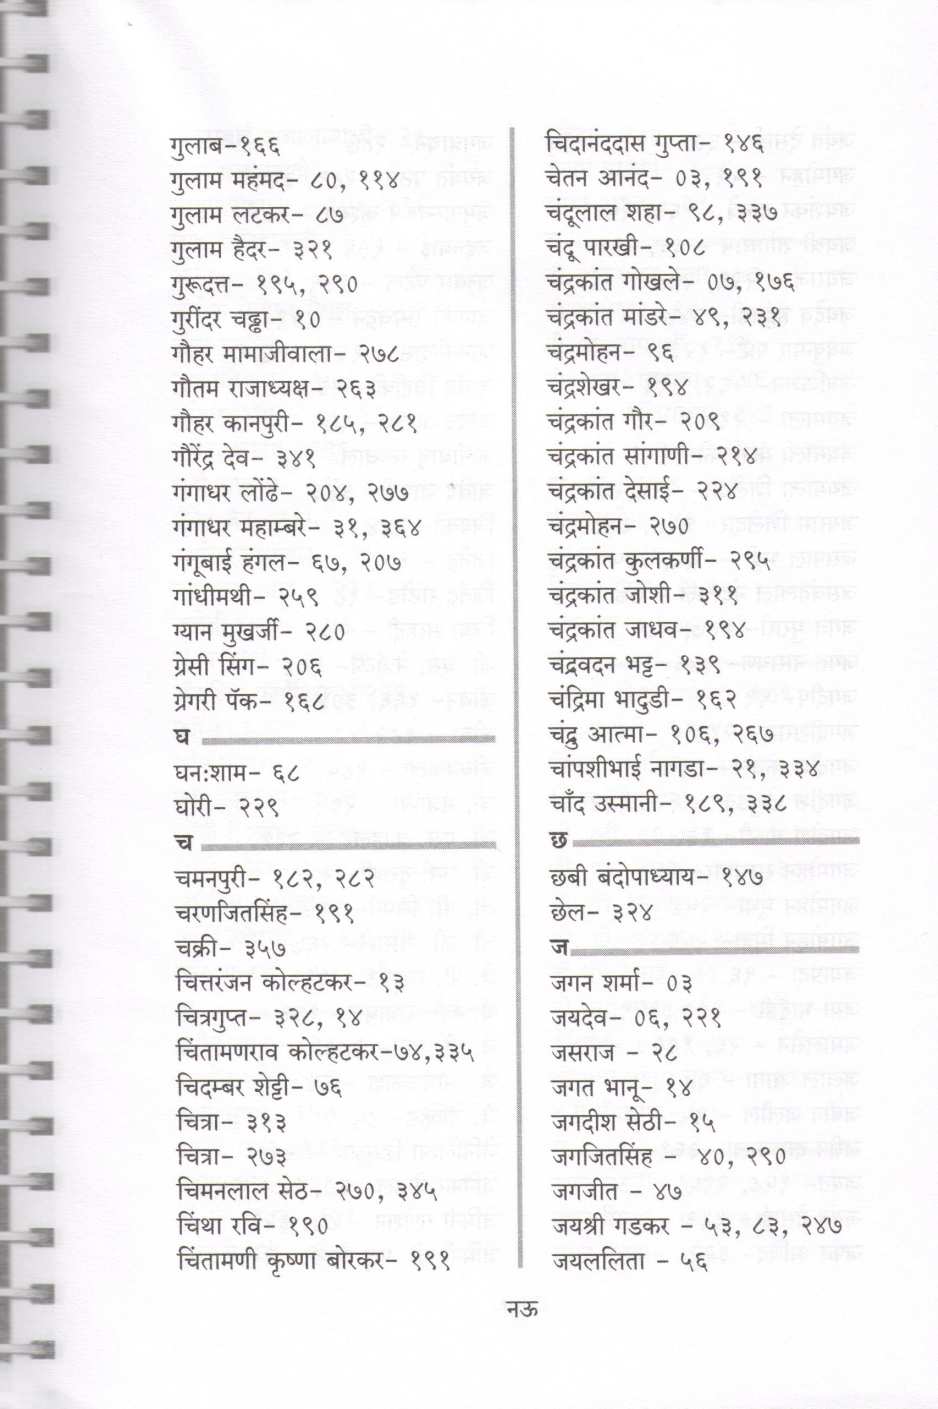 गुलाब-१६६
गुलाम महंमद- ८०, ११४
गुलाम लटकर- ८७
गुलाम हैदर- ३२१
गुरूदत्त- १९५, २९०
गुरींदर चढ्ढा- १०
गौहर मामाजीवाला- २७८
गौतम राजाध्यक्ष- २६३
गौहर कानपुरी- १८५, २८१
गौरेंद्र देव- ३४१
गंगाधर लोंढे- २०४, २७७
गंगाधर महाम्बरे- ३१, ३६४
गंगूबाई हंगल- ६७, २०७
गांधीमथी- २५९
ग्यान मुखर्जी- २८०
ग्रेसी सिंग- २०६
ग्रेगरी पॅक- १६८
घ
घन:शाम- ६८
घोरी- २२९
च
चमनपुरी- १८२, २८२
चरणजितसिंह- १९१
चक्री- ३५७
चित्तरंजन कोल्हटकर- १३
चित्रगुप्त- ३२८, १४
चिंतामणराव कोल्हटकर-७४,३३५
चिदम्बर शेट्टी- ७६
चित्रा- ३१३
चित्रा- २७३
चिमनलाल सेठ- २७०, ३४५
चिंथा रवि- १९०
चिंतामणी कृष्णा बोरकर- १९१
चिदानंददास गुप्ता- १४६
चेतन आनंद- ०३, १९१
चंदूलाल शहा- ९८, ३३७
चंदू पारखी- १०८
चंद्रकांत गोखले- ०७, १७६
चंद्रकांत मांडरे- ४९, २३१
चंद्रमोहन- ९६
चंद्रशेखर- १९४
चंद्रकांत गौर- २०९
चंद्रकांत सांगाणी- २१४
चंद्रकांत देसाई- २२४
चंद्रमोहन- २७०
चंद्रकांत कुलकर्णी- २९५
चंद्रकांत जोशी- ३११
चंद्रकांत जाधव- १९४
चंद्रवदन भट्ट- १३९
चंद्रिमा भादुडी- १६२
चंद्रु आत्मा- १०६, २६७
चांपशीभाई नागडा- २१, ३३४
चाँद उस्मानी- १८९, ३३८
छ
छबी बंदोपाध्याय- १४७
छेल- ३२४
ज
जगन शर्मा- ०३
जयदेव- ०६, २२१
जसराज - २८
जगत भानू- १४
जगदीश सेठी- १५
जगजितसिंह - ४०, २९०
जगजीत - ४७
जयश्री गडकर - ५३, ८३, २४७
जयललिता - ५६
नऊ